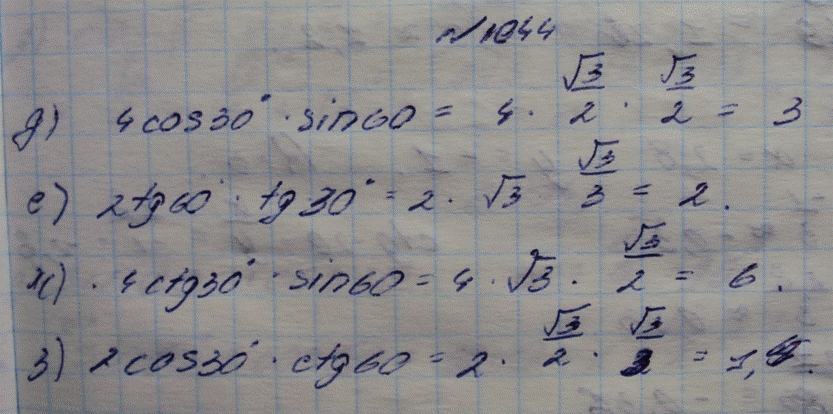 №1044
д) 4cos30° · sin60 = 4 · √3/2 · √3/2 = 3
е) 2tg60° · tg30° = 2 · √3 √3/3 = 2.
ж) 4ctg30° · sin60 = 4 · √3 · √3/2 = 6.
з) 2cos30° · ctg60 = 2 · √3/2 · √3